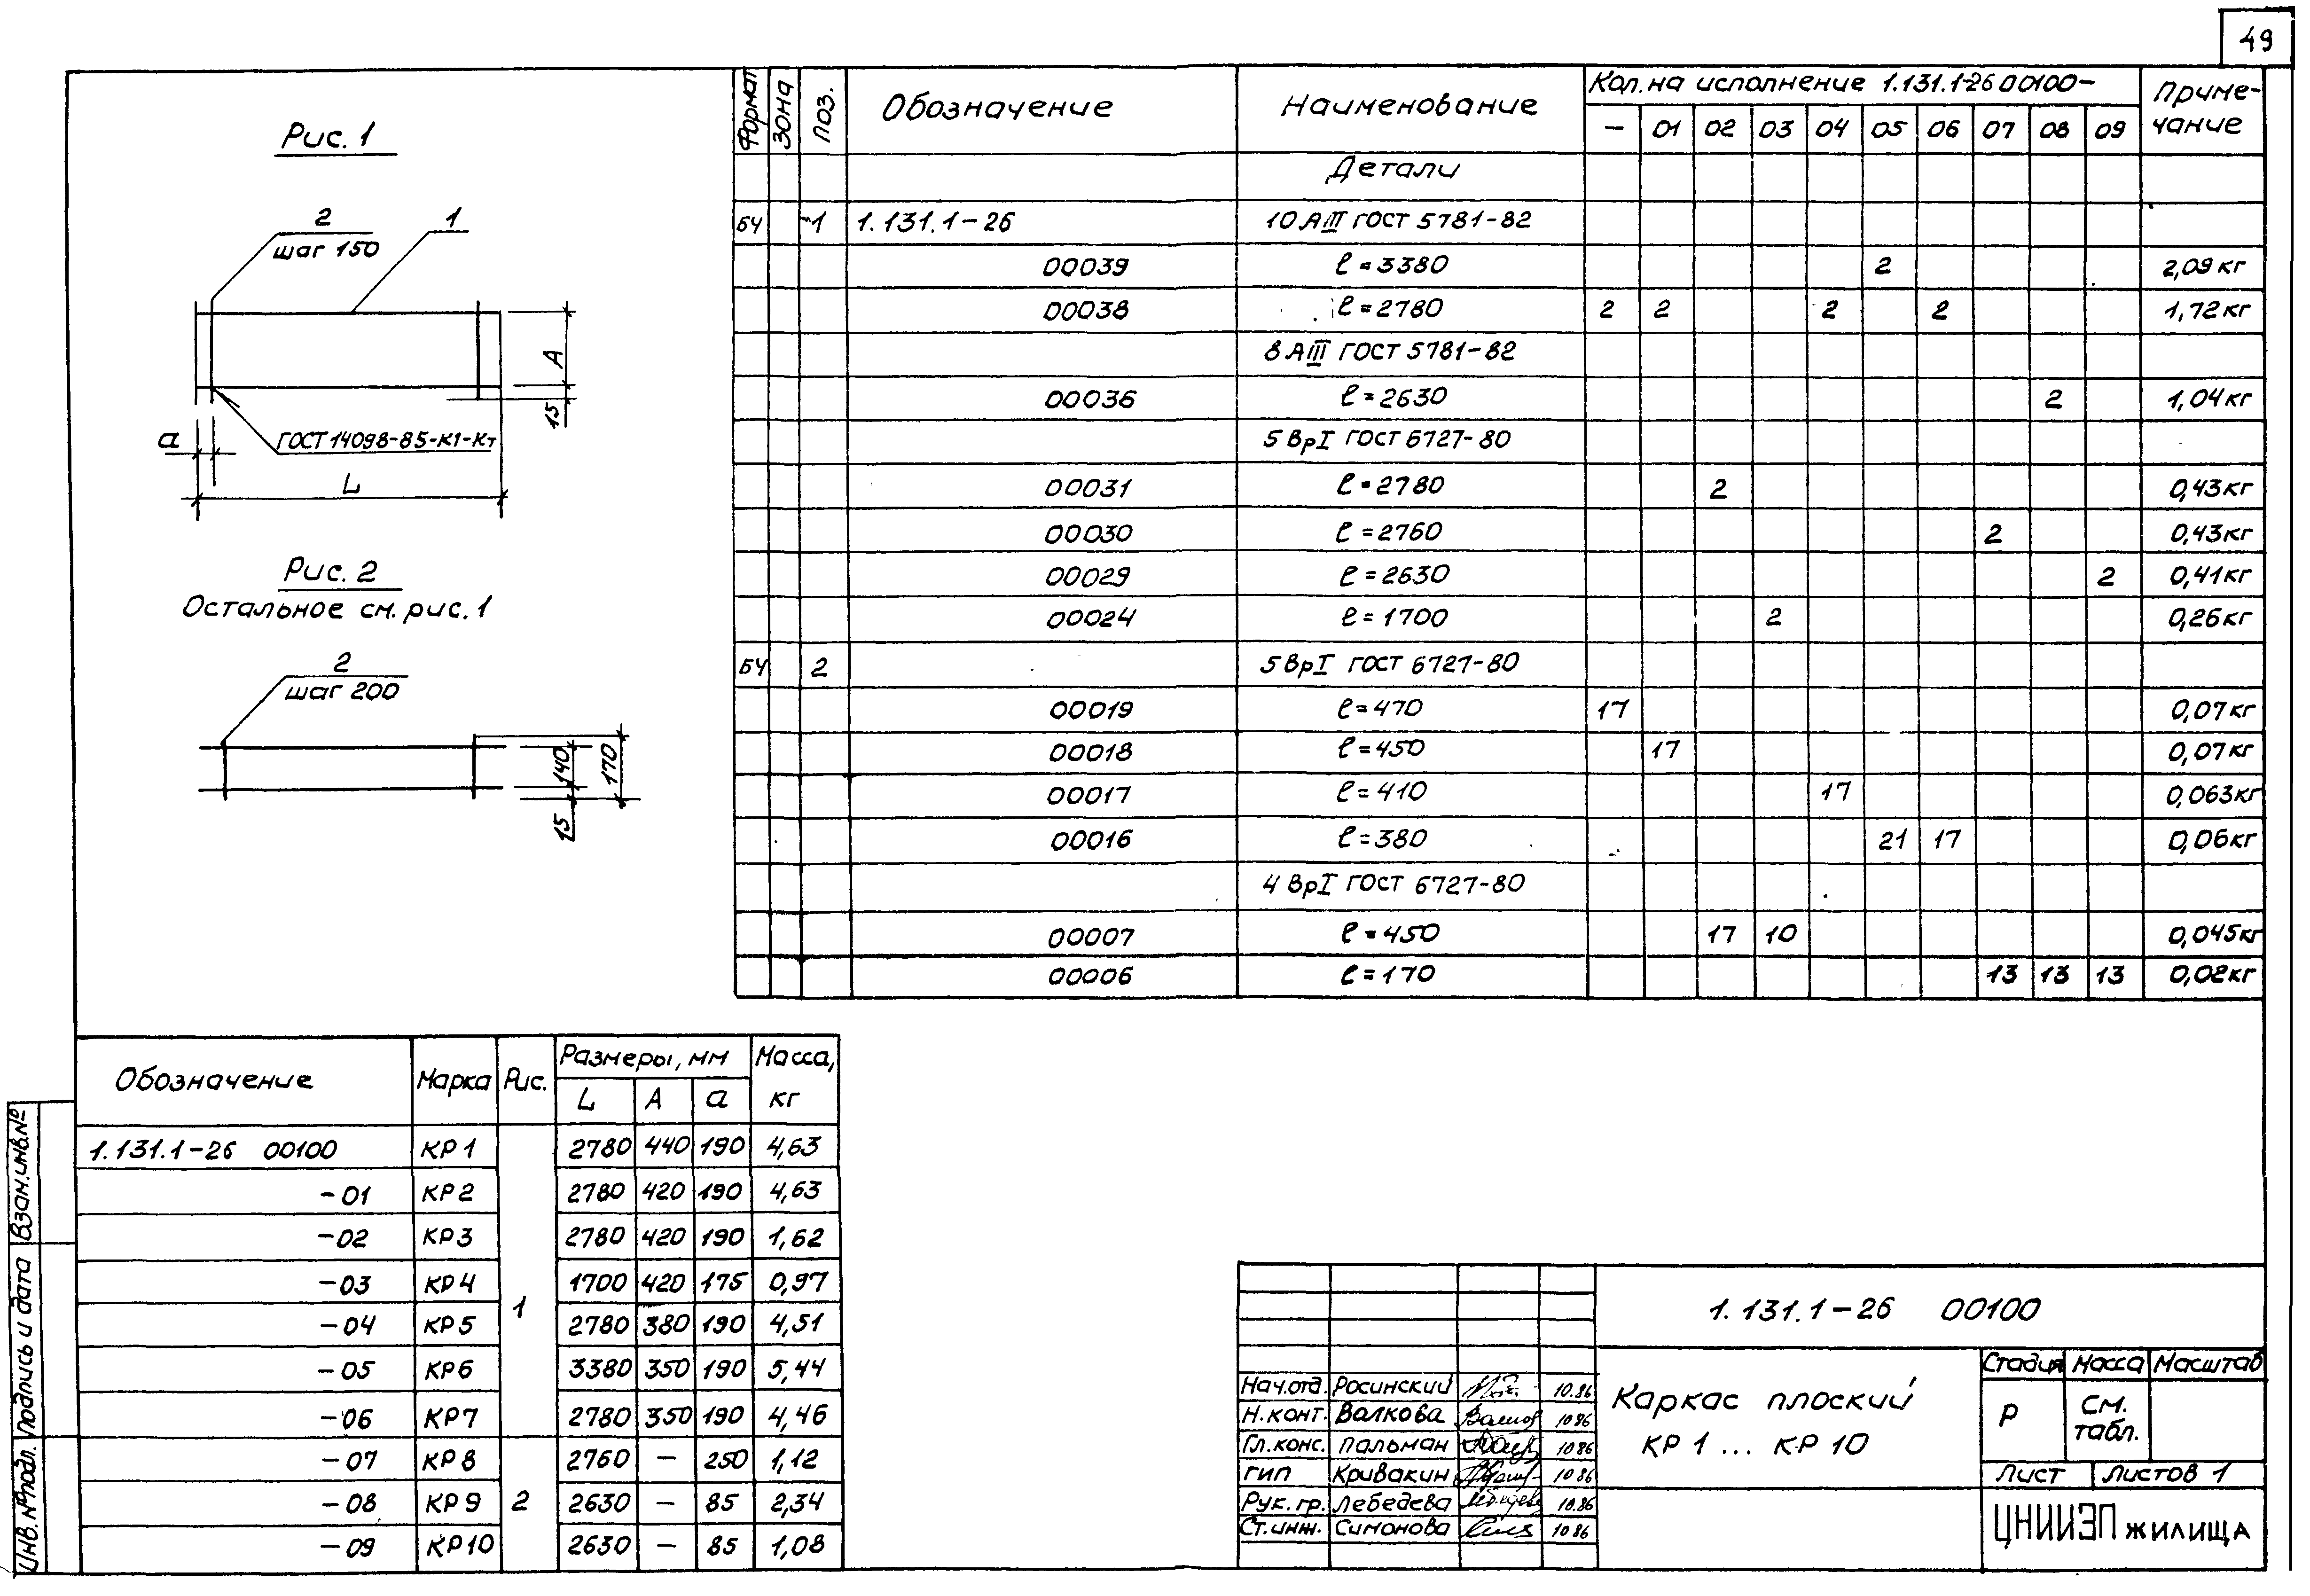 49
Рис. 1
2
шаг 150
1
А
15
а
ГОСТ 14098-85-К1-Кт
L
Рис. 2
Остальное см. рис. 1
2
шаг 200
140
170
15
Формат Зона Поз. Обозначение Наименование Кол. на исполнение 1.131.1-26 00100- Приме-
— 01 02 03 04 05 06 07 08 09 чание
Детали
БЧ 1 1.131.1-26 10 АIII ГОСТ 5781-82
00039 ℓ=3380 2 2,09 кг
00038 ℓ=2780 2 2 2 2 1,72 кг
8 АIII ГОСТ 5781-82
00036 ℓ=2630 2 1,04 кг
5 ВрI ГОСТ 6727-80
00031 ℓ=2780 2 0,43 кг
00030 ℓ=2760 2 0,43 кг
00029 ℓ=2630 2 0,41 кг
00024 ℓ=1700 2 0,26 кг
БЧ 2 5 ВрI ГОСТ 6727-80
00019 ℓ=470 17 0,07 кг
00018 ℓ=450 17 0,07 кг
00017 ℓ=410 17 0,063 кг
00016 ℓ=380 21 17 0,06 кг
4 ВрI ГОСТ 6727-80
00007 ℓ=450 17 10 0,045 кг
00006 ℓ=170 13 13 13 0,02 кг
Обозначение Марка Рис. Размеры, мм Масса,
L А а кг
1.131.1-26 00100 КР1 2780 440 190 4,63
-01 КР2 2780 420 190 4,63
-02 КР3 2780 420 190 1,62
-03 КР4 1700 420 175 0,97
1
-04 КР5 2780 380 190 4,51
-05 КР6 3380 350 190 5,44
-06 КР7 2780 350 190 4,46
-07 КР8 2760 — 250 1,12
-08 КР9 2 2630 — 85 2,34
-09 КР10 2630 — 85 1,08
Взам. инв. №
Подпись и дата
Инв. № подл.
1.131.1-26 00100
Нач. отд. Росинский 10.86
Н. конт. Волкова 10.86
Гл. конс. Пальман 10.86
ГИП Кривакин 10.86
Рук. гр. Лебедева 10.86
Ст. инж. Симонова 10.86
Каркас плоский
КР 1 ... КР 10
Стадия Масса Масштаб
Р См.
табл.
Лист Листов 1
ЦНИИЭП жилища